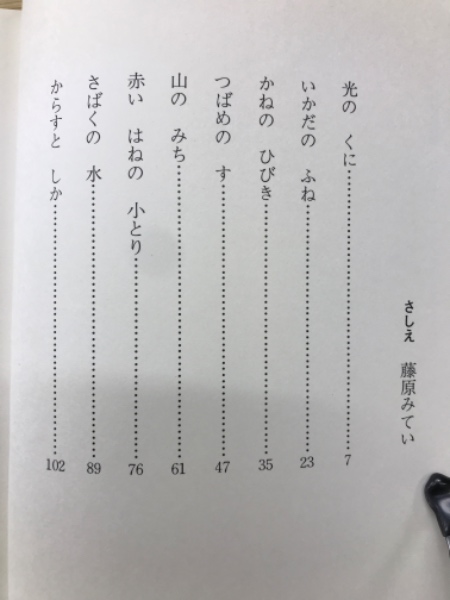 さしえ　藤原みてい
光の　くに……………………………… 7
いかだの　ふね……………………………… 23
かねの　ひびき……………………………… 35
つばめの　す……………………………… 47
山の　みち……………………………… 61
赤い　はねの　小とり……………………………… 76
さばくの　水……………………………… 89
からすと　しか……………………………… 102